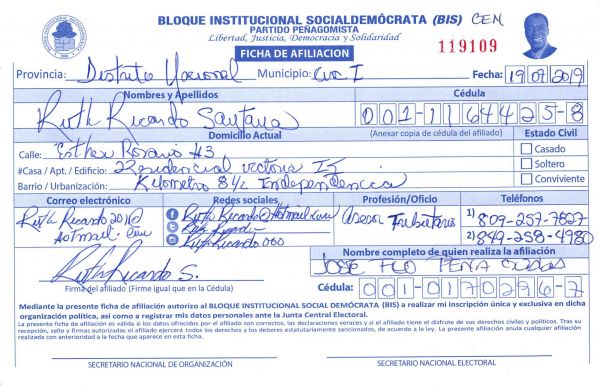 BLOQUE INSTITUCIONAL SOCIALDEMÓCRATA (BIS) CEN
PARTIDO PEÑAGOMISTA
Libertad, Justicia, Democracia y Solidaridad
FICHA DE AFILIACION
119109
Provincia: Distrito Nacional Municipio: Circ. I Fecha: 19 09 2019
Nombres y Apellidos Cédula
Ruth Ricardo Santana 001-1164425-8
Domicilio Actual (Anexar copia de cédula del afiliado) Estado Civil
Calle: Esther Rosario #3 Casado
#Casa / Apt. / Edificio: Residencial victoria II Soltero
Barrio / Urbanización: Kilometro 8 1/2 Independencia Conviviente
Correo electrónico Redes sociales Profesión/Oficio Teléfonos
Ruth Ricardo 201@ Ruth Ricardo@Hotmail.com Asesor Tributario 1) 809-257-7827
Hotmail.com 2) 849-258-4980
Ruth Ricardo 000
Nombre completo de quien realiza la afiliación
Ruth Ricardo S. JOSE FCO PEÑA
Firma del afiliado (Firme igual que en la Cédula) Cédula: 001-0170296-7
Mediante la presente ficha de afiliación autorizo al BLOQUE INSTITUCIONAL SOCIAL DEMÓCRATA (BIS) a realizar mi inscripción única y exclusiva en dicha
organización política, así como a registrar mis datos personales ante la Junta Central Electoral.
La presente ficha de afiliación es válida si los datos ofrecidos por el afiliado son correctos, las declaraciones veraces y si el afiliado tiene el disfrute de sus derechos civiles y políticos. Tras su
recepción, sello y firmas autorizadas el afiliado ejercerá todos los derechos y los deberes estatutariamente sancionados, de acuerdo a la ley. La presente afiliación anula cualquier afiliación
realizada con anterioridad a la fecha que aparece en esta ficha.
SECRETARIO NACIONAL DE ORGANIZACIÓN SECRETARIO NACIONAL ELECTORAL